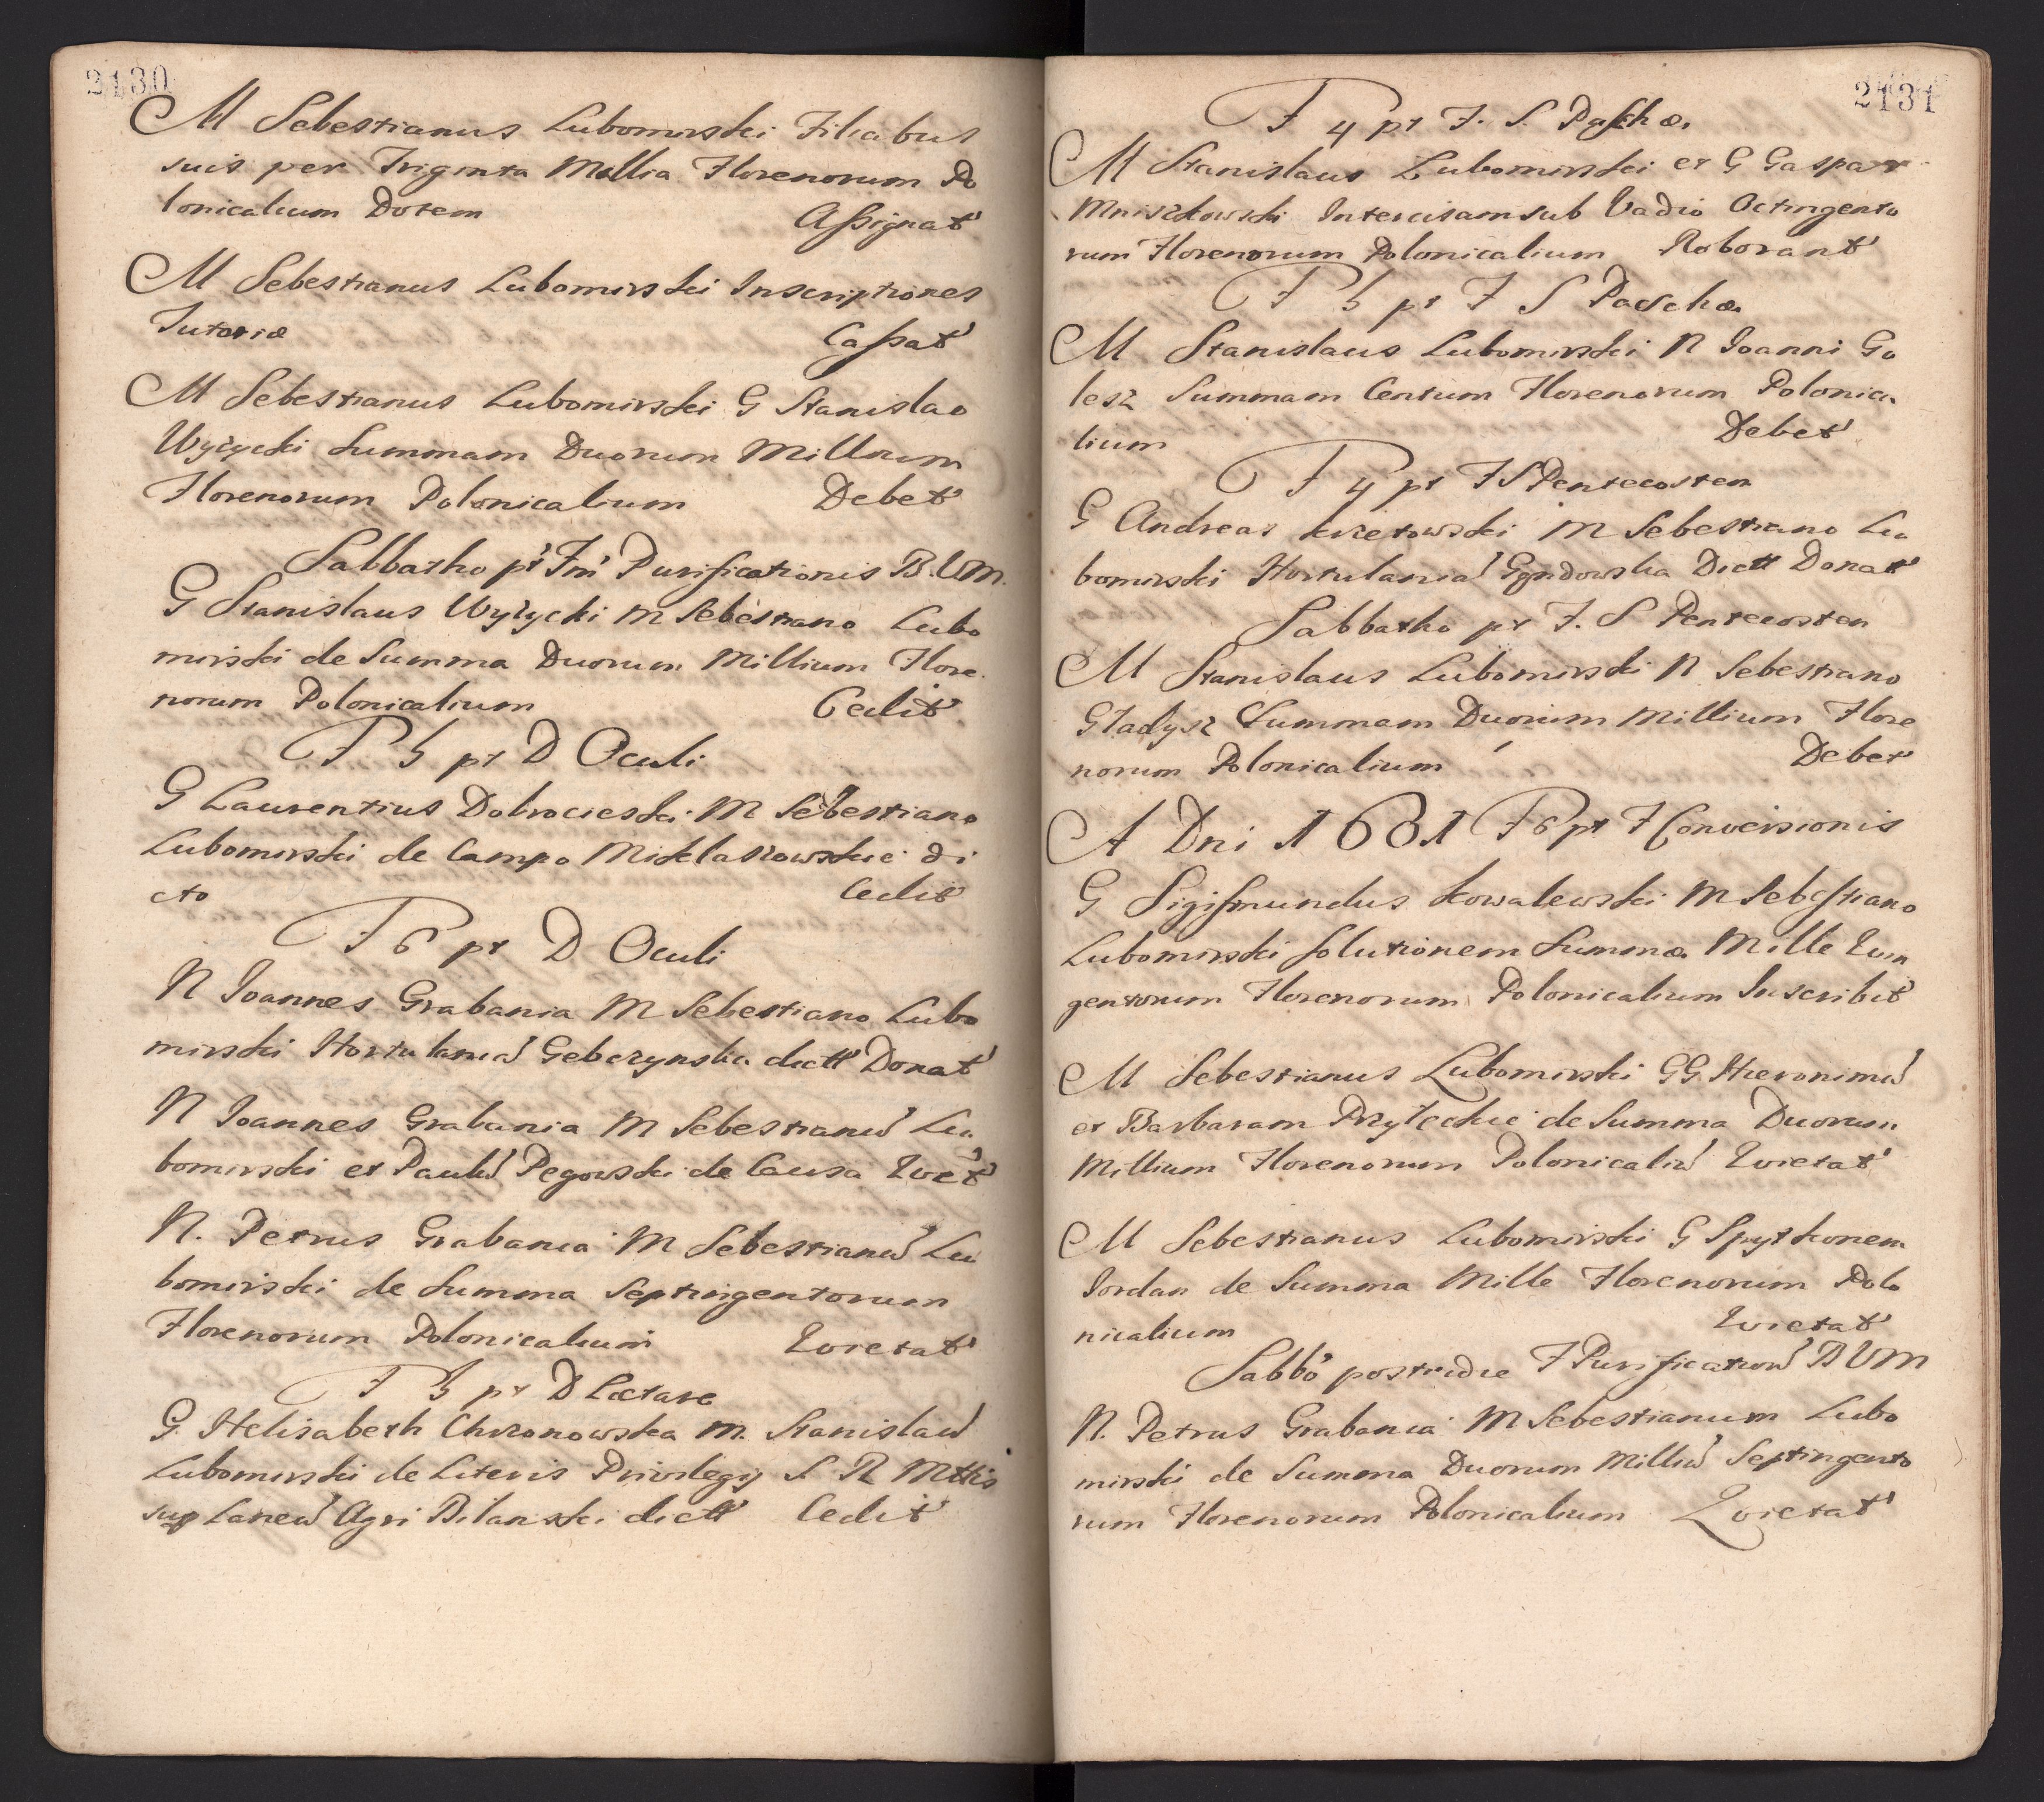 2130
M Sebestianus Lubomirski Filiabus
suis per Triginta Millia Florenorum Po
lonicalium Dotem Assignat
M Sebestianus Lubomirski Inscriptiones
Tutoriæ Cassat
M Sebestianus Lubomirski G Stanislao
Wyżycki Summam Duorum Millium
Florenorum Polonicalium Debet
Sabbatho pt Fm Purificationis B.V.M.
G Stanislaus Wyżycki M Sebestiano Lubo
mirski de Summa Duorum Millium Flore
norum Polonicalium Cedit
F 5 pt D Oculi
G Laurentius Dobrocieski M Sebestiano
Lubomirski de Campo Miklaszowskie di
cto Cedit
F 6 pt D Oculi
N Joannes Grabania M Sebestiano Lubo
mirski Hortulaniam Gebczynska dictt Donat
N Joannes Grabania M Sebestianum Lu
bomirski et Paulum Pegowski de Causa Quiet
N. Petrus Grabania M Sebestianum Lu
bomirski de Summa Septingentorum
Florenorum Polonicalium Quietat
F 5 pt D Lætare
G. Helisabeth Chrzanowska M. Stanislaum
Lubomirski de Literis Privilegij S R Mttis
sup Laneum Agri Bilanski dictt Cedit
2131
F 4 pt F. S. Paschæ
M Stanislaus Lubomirski et G Gaspar
Mniszkowski Intercisam sub Vadio Octingento
rum Florenorum Polonicalium Roborant
F 5 pt F S Paschæ
M Stanislaus Lubomirski N Joanni Go
lesz Summam Centum Florenorum Polonica
lium Debet
F 4 pt F S Pentecosten
G Andreas M Sebestiano Lu
bomirski Hortulaniam Dictt Donat
Sabbatho pt F. S Pentecosten
M Stanislaus Lubomirski N Sebestiano
Gładysz Summam Duorum Millium Flore
norum Polonicalium Debet
A Dni 1601 F 6 pt F Conversionis
G Sigismundus Kowalewski M Sebestiano
Lubomirski solutionem Summæ Mille Quin
gentorum Florenorum Polonicalium Inscribit
M Sebestianus Lubomirski GG Hieronimum
et Barbaram Przyłeckie de Summa Duorum
Millium Florenorum Polonicalium Quietat
M Sebestianus Lubomirski G Spytkonem
Jordan de Summa Mille Florenorum Polo
nicalium Quietat
Sabbo postridie F Purificationum B V M
N. Petrus Grabania M Sebestianum Lubo
mirski de Summa Duorum Millium Septingento
rum Florenorum Polonicalium Quietat